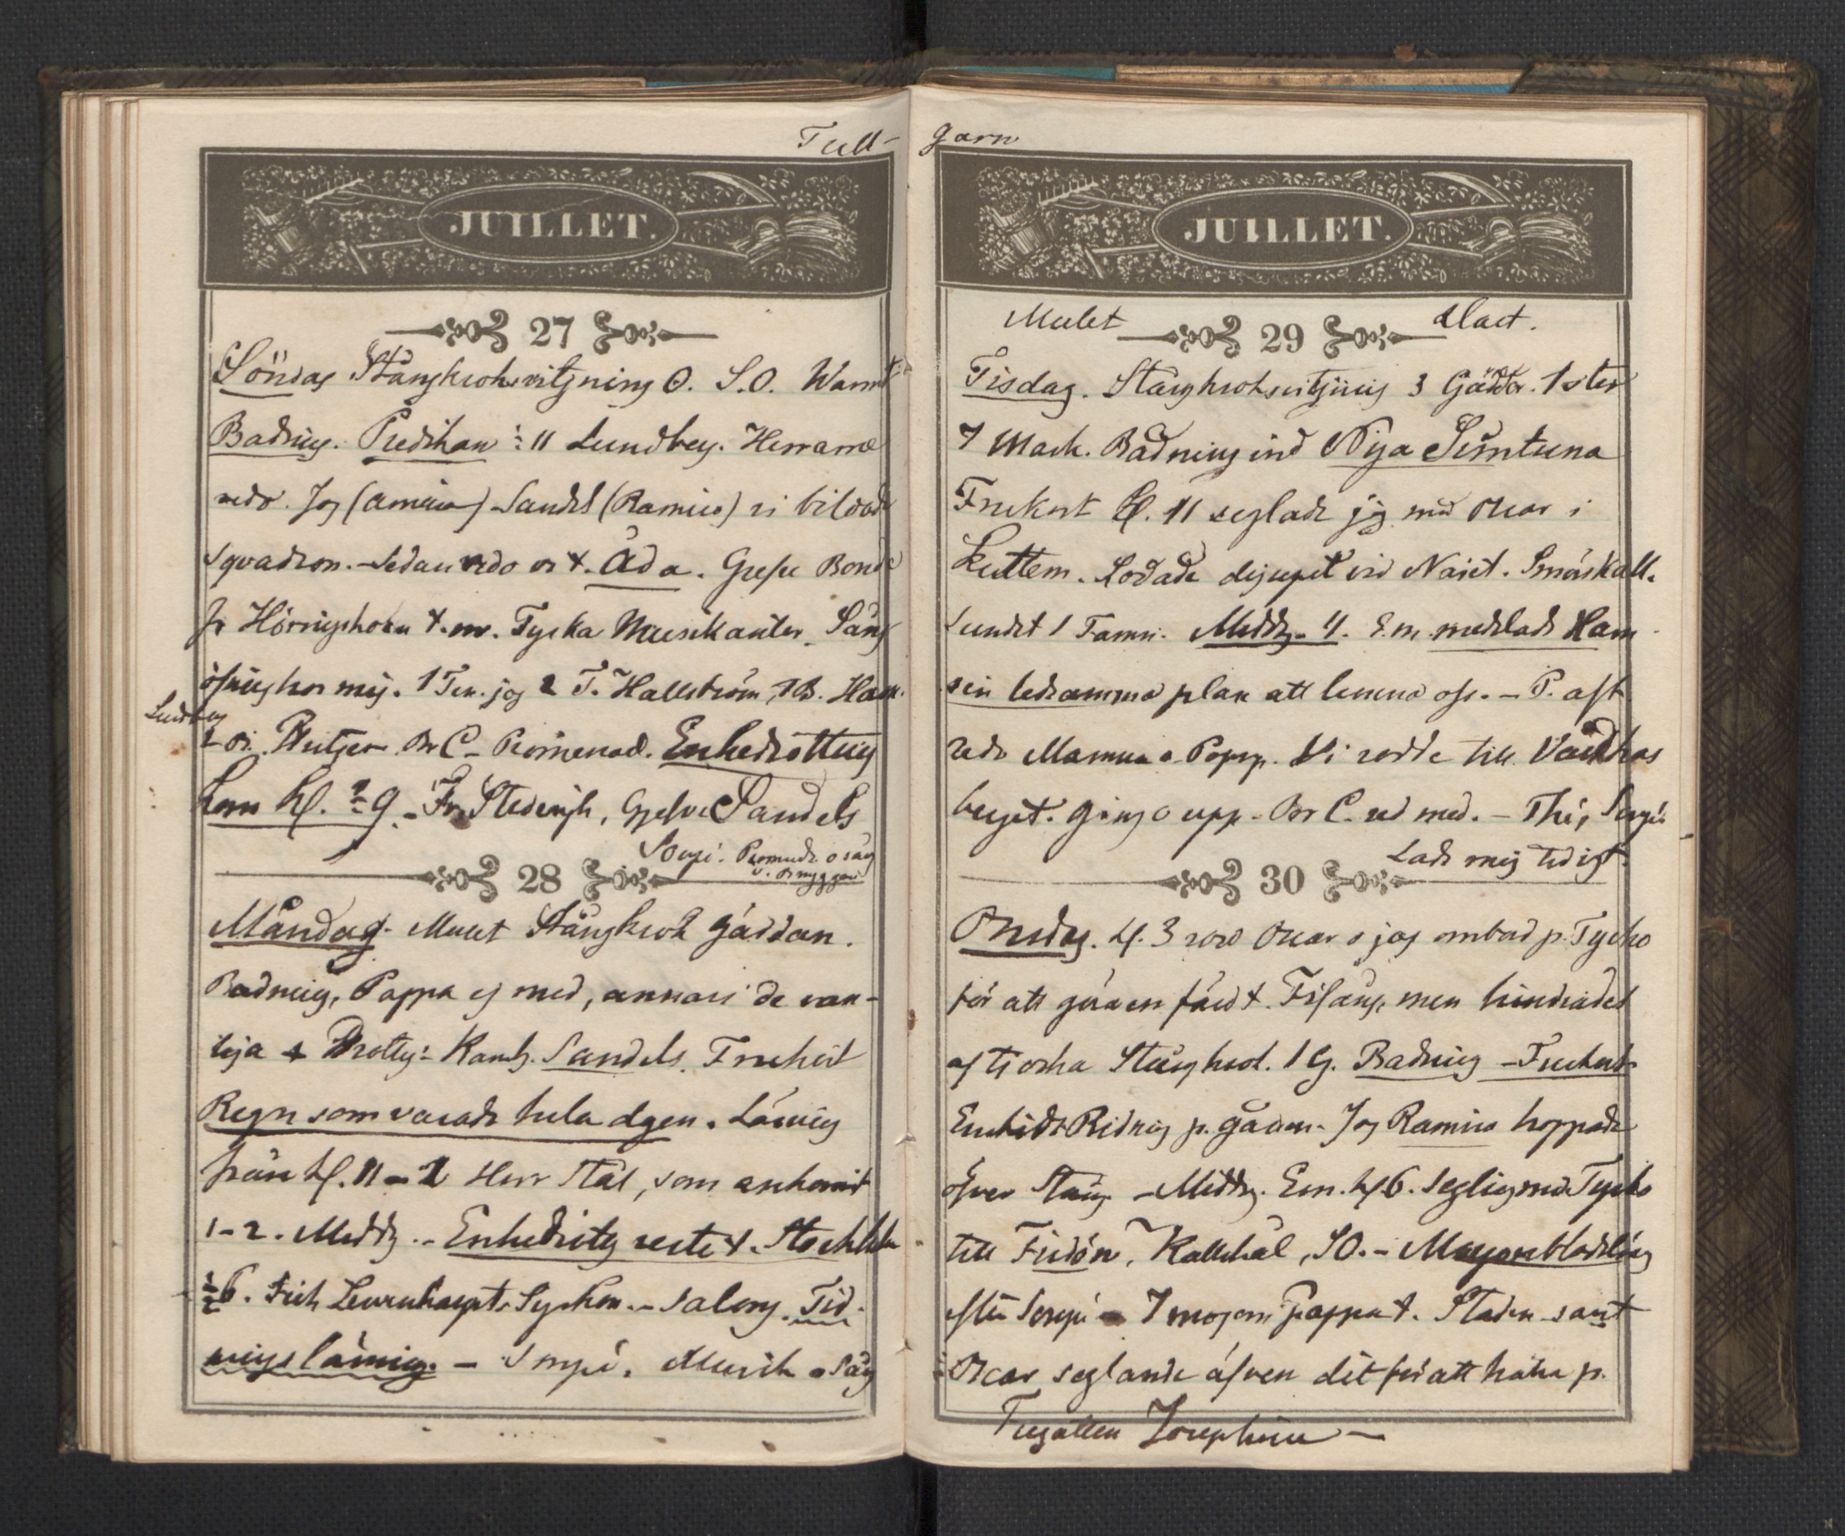 Tull-
JUILLET.
27
Söndag Stångkroksvitjning 0. S.O. Warmt
Badning. Predikan ½ 11 Lundberg. Herrarne
redo. Jag (Amiris) Sandels (Ramiro) vi bildade
sqvadron. - Sedan redo vi t. Åda. Grefve Bonde
fr Hörningsholm t. m. Tyska Musikanter. Sång
öfning hos mig. 1 Ten. jag 2 T. Hallström, 1 B. Ham.
Lundberg
2 B. Rutger. Br C - Promenad. Enkedrottning
kom kl. ½ 9. - Fr. Stedingk, Grefve Sandels
Soupé. Permuda o sång
v. Bryggan
28
Måndag. Mulet Stångkrok gäddan.
Badning, Pappa ej med, annars de van-
liga + Drottg: Kamh. Sandels. Frukost
Regn som varade hela dgen. Läsning
från kl. 11 - 1 Herr Stål, som ankomit
1-2. Middg. - Enkedrottg reste t. Stockhlm
½ 6. Frih Lewenhaupts Syskon. - Salong. Tid-
nings läsning. - Soupé. Musik o Sång
garn
JUILLET.
Mulet
29
Blåst.
Tisdag. Stångkroksvitjning 3 Gäddor. 1 stor
7 Mark. Badning vid Nya Simtuna
Frukost Kl. 11 seglade jag med Oscar i
Kuttern. Lodade djupet vid Näset. Småskall.
sundet 1 Famn. Middg. 4. E.m. meddelade Ham
sin ledsamma plan att lemna oss. - P. aft
redo Mamma o Papp. Vi rodde till Vårdkas
berget. Gingo upp. Br C. red med. - Thé, Soupé.
Lade mig tidigt.
30
Onsdag. kl. 3 voro Oscar o jag ombord p. Tycho
för att göra en färd t. Fifång, men hindrades
af tjocka Stångkrok. 1 G. Badning - Frukost
Enskilt Ridning p. gården. Jag Ramiro hoppade
öfver Stång - Middg. Em. kl 6. segling med Tycho
till Fridön, Kallskäl, SO. - Morgonbladsläsng
efter Soupé - I morgon Pappa t. Staden samt
Oscar seglande äfven dit för att hälsa p.
Fregatten Josephine -